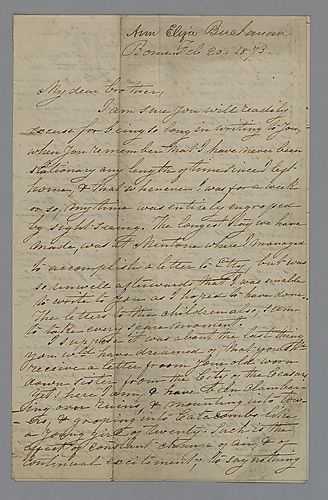 Ann Eliza Buchanan
Rome Feb 20. 1873.
My dear brother,
I am sure you will readily
excuse for being so long in writing to you,
when you remember that I have never been
stationary any length of time since I left
home, & that whenever I was for a week
or so, my time was entirely engrossed
by sight seeing. The longest stay we have
made, was at Mentone where I managed
to accomplish a letter to City, but was
so unwell afterwards that I was unable
to write to you as I hoped to have done.
The letters to the children also, seem
to take every spare moment.
I suppose it was about the last thing
you would have dreamed of, that you should
receive a letter from your old worn
down sister from the City of the Ceasars
yet here I am, & have been clamber-
ing over ruins, & mounting into tow-
ers, & groping into Catacombs like
a young girl of twenty. Such is the
effect of constant change of air & of
continual excitement, to say nothing